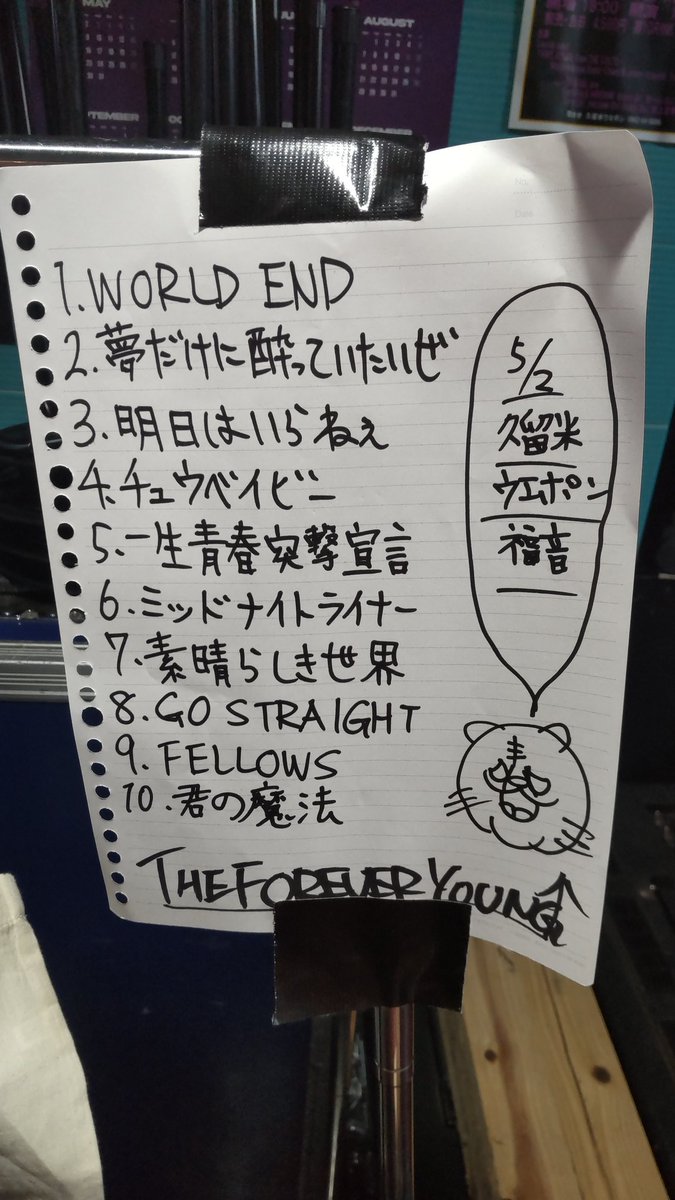 MAY
AUGUST
No.
Date
1.WORLD END
2.夢だけに酔っていたいぜ
3.明日はいらねぇ
4.チュウベイビー
5.一生青春突撃宣言
6.ミッドナイトライナー
7.素晴らしき世界
8.GO STRAIGHT
9.FELLOWS
10.君の魔法
THE FOREVER YOUNG
5/2
久留米
ウエポン
福音